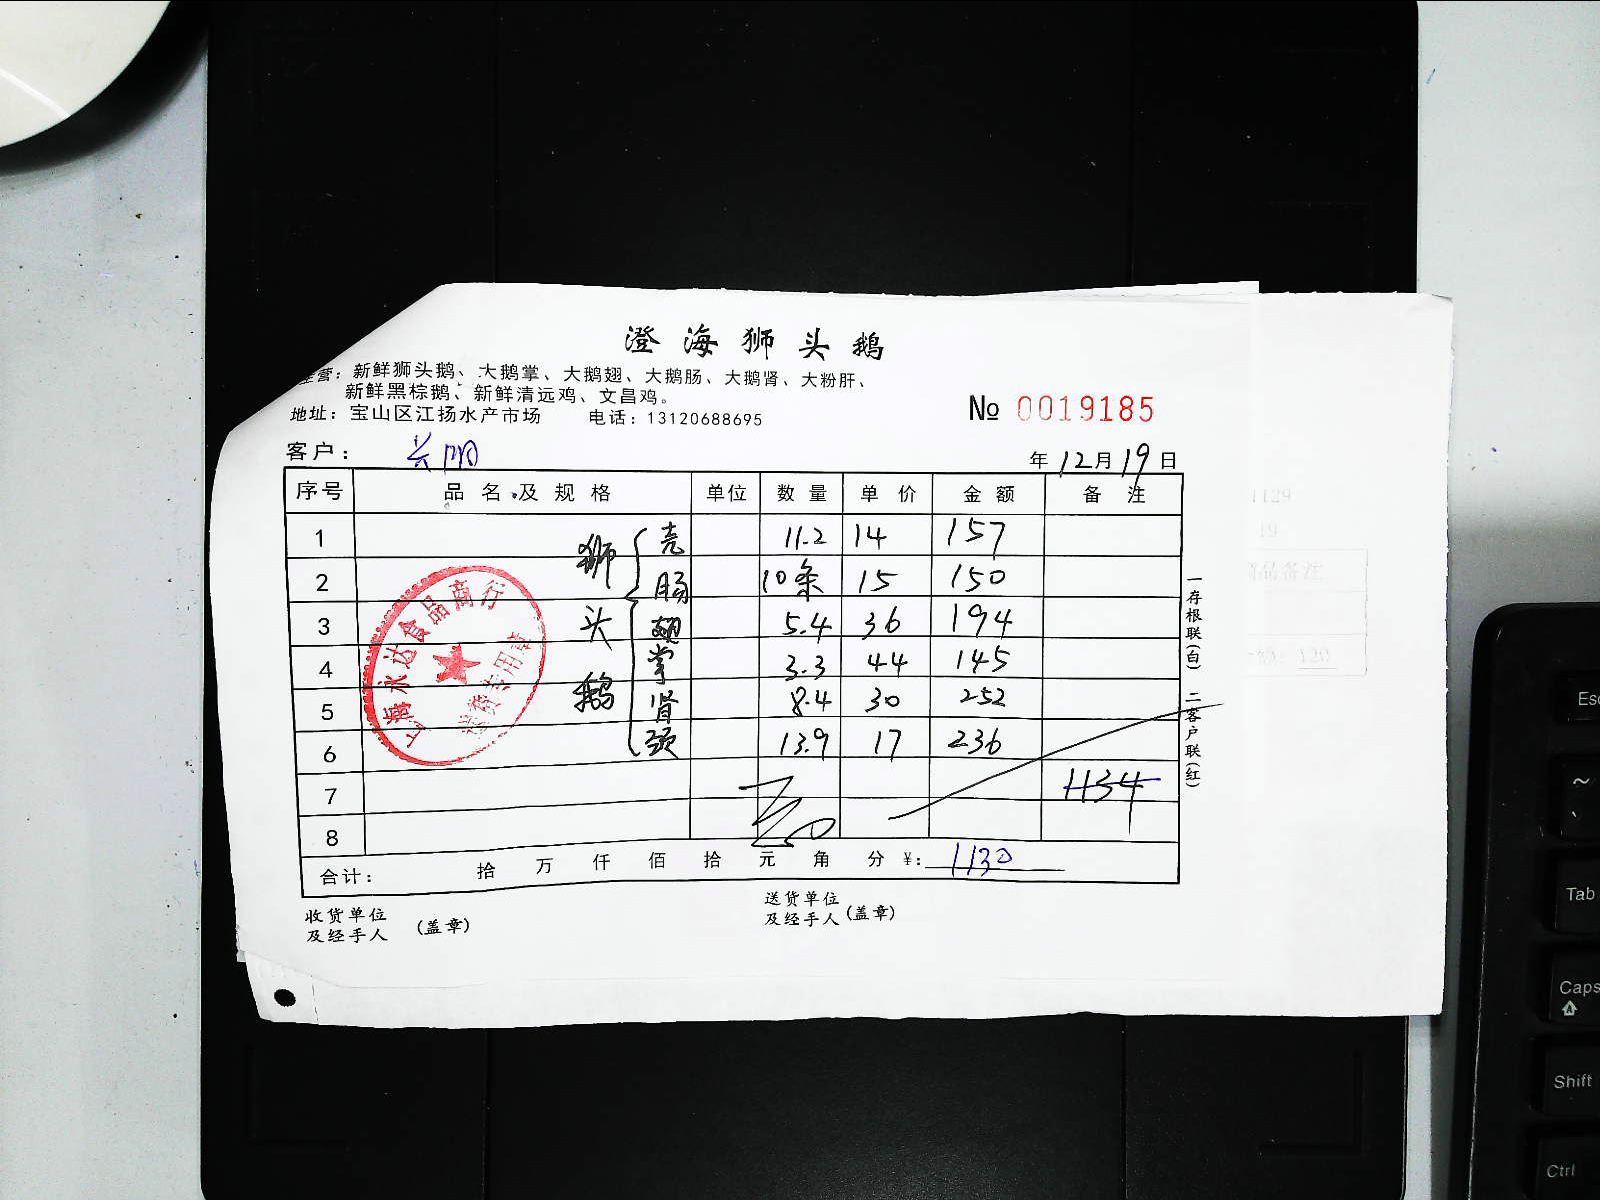 澄海狮头鹅
主营：新鲜狮头鹅、大鹅掌、大鹅翅、大鹅肠、大鹅肾、大粉肝、
新鲜黑棕鹅、新鲜清远鸡、文昌鸡。
地址：宝山区江扬水产市场 电话：13120688695
№ 0019185
客户： 年 12月 19日
序号 品名及规格 单位 数量 单价 金额 备注
狮头鹅
1 壳 11.2 14 157
2 肠 10条 15 150
3 翅 5.4 36 194
4 掌 3.3 44 145
5 肾 8.4 30 252
6 颈 13.9 17 236
7 1134
8
合计： 拾 万 仟 佰 拾 元 角 分 ¥：1130
收货单位
及经手人 (盖章)
送货单位
及经手人 (盖章)
一存根联(白) 二客户联(红)
上海永达食品商行
专用章
1129
19
商品备注
120
Esc
~
Tab
Caps
Shift
Ctrl